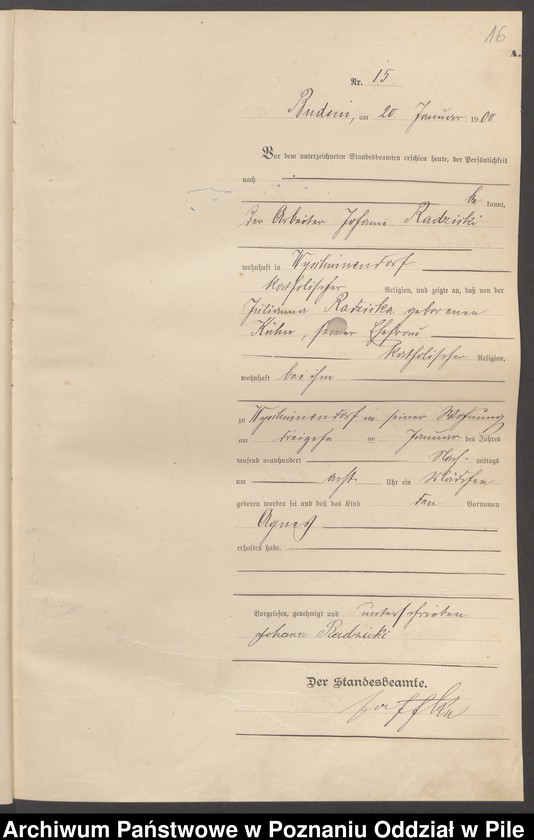 16
A.
Nr. 15
Budsin, am 20. Januar 1900
Vor dem unterzeichneten Standesbeamten erschien heute, der Persönlichkeit
nach
be kannt,
der Arbeiter Johann Radzicki
wohnhaft in
katholischer Religion, und zeigte an, daß von der
Julianna Radzicka geborenen
Kühn, seiner Ehefrau
katholischer Religion,
wohnhaft bei ihm
zu in seiner Wohnung
am dreizehn ten Januar des Jahres
tausend neunhundert Nach- mittags
um acht Uhr ein Mädchen
geboren worden sei und daß das Kind den Vornamen
Agnes
erhalten habe.
Vorgelesen, genehmigt und unterschrieben
Johann Radzicki
Der Standesbeamte.
Archiwum Państwowe w Poznaniu Oddział w Pile